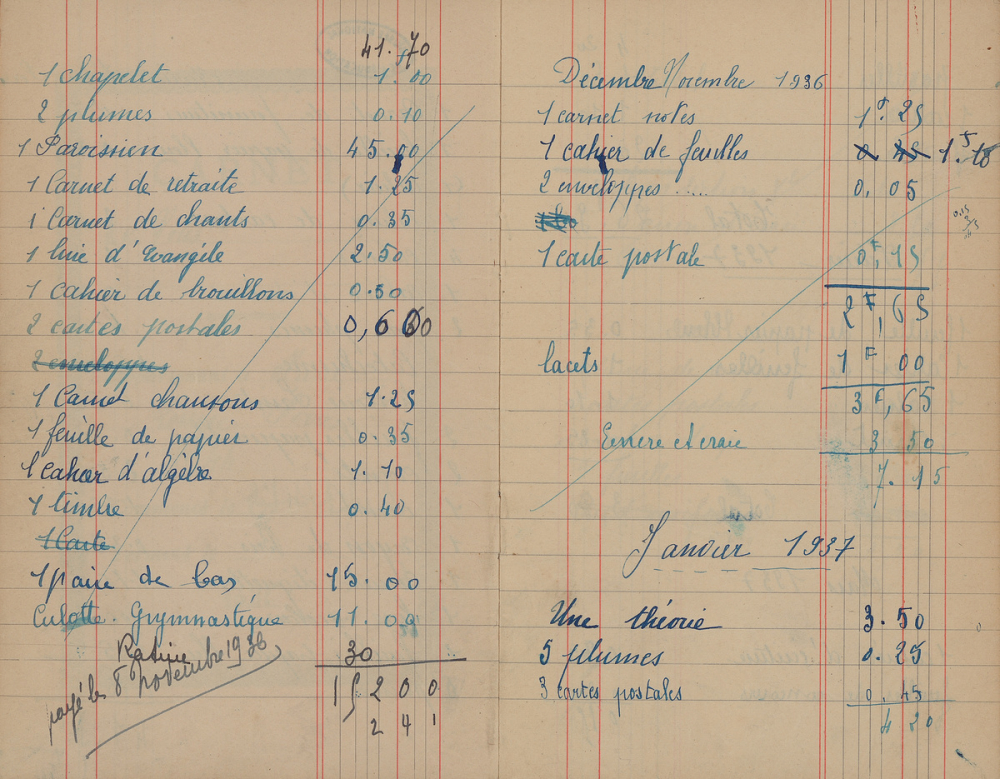 41.70
1 chapelet 1.00
2 plumes 0.10
1 Paroissien 45.00
1 Carnet de retraite 1.25
1 Carnet de chants 0.35
1 livre d'Evangile 2.50
1 cahier de brouillons 0.50
2 cartes postales 0,60
2 enveloppes
1 Carnet chansons 1.25
1 feuille de papier 0.35
1 cahier d'algèbre 1.10
1 timbre 0.40
1 Carte
1 paire de bas 15.00
Culotte. Gymnastique 11.00
30
payé les 8 novembre 1936
15200
241
Décembre Novembre 1936
1 carnet notes 1F25
1 cahier de feuilles 1.
2 enveloppes ..... 0,05
1 carte postale 0F,15
2F,65
lacets 1F00
3F,65
Encre et craie 3 50
7.15
Janvier 1937
Une théorie 3.50
5 plumes 0.25
3 cartes postales 0.45
4 20